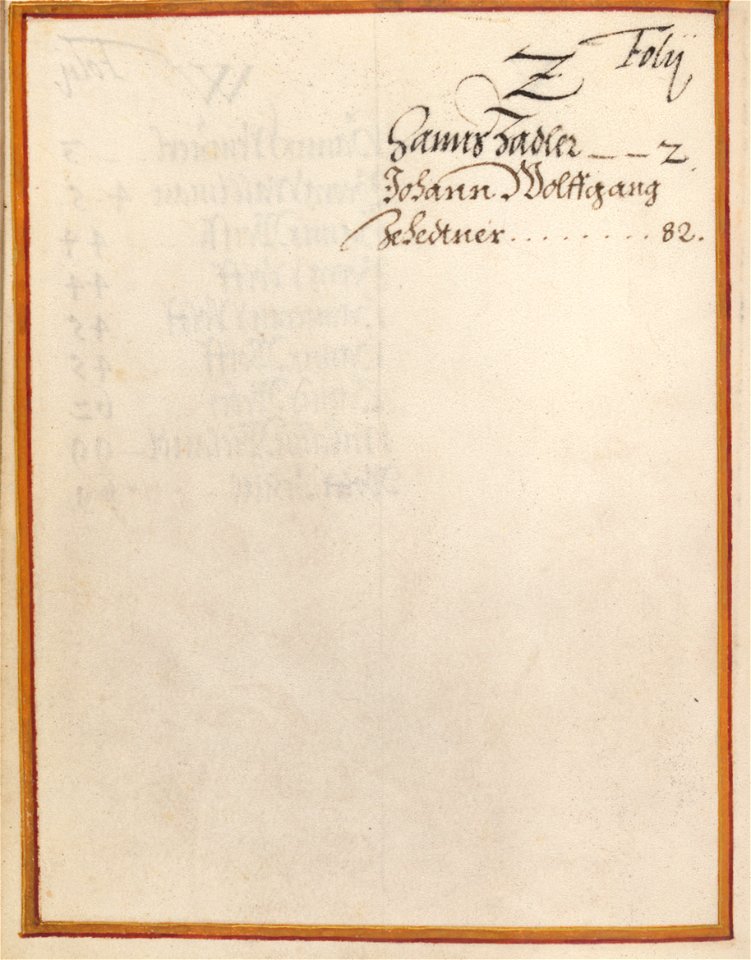 Z Folij
Hanns Zadler _ _ 2
Johann Wolffgang
Zehedtner . . . . . . . . . 82.